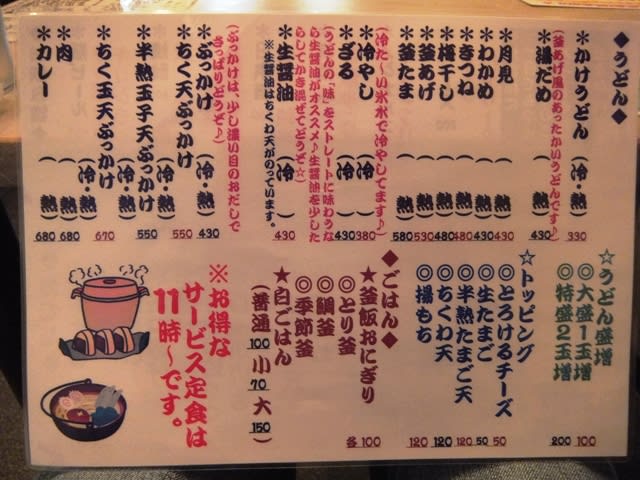 ◆うどん◆
＊かけうどん （熱） 330
（釜あげ風のあったかいうどんです♪）
＊湯だめ （熱） 430
＊月見 （熱） 430
＊わかめ （熱） 480
＊きつね （熱） 480
＊梅干し （熱） 480
＊釜あげ （熱） 530
＊釜たま （熱） 580
（冷た～い氷水で冷やしてます♪）
＊冷やし （冷） 380
＊ざる （冷） 430
（うどんの「味」をストレートに味わうな
ら生醤油がオススメ♪生醤油を少した
らしてかき混ぜてどうぞ☆）
＊生醤油 （冷） 430
※生醤油はちくわ天がのっています。
（ぶっかけは、少し濃い目のおだしで
さっぱりどうぞ♪）
＊ぶっかけ （冷・熱） 430
＊ちく天ぶっかけ （冷・熱） 550
＊半熟玉子天ぶっかけ （冷・熱） 550
＊ちく玉天ぶっかけ （冷・熱） 670
＊肉 （熱） 680
＊カレー （熱） 680
☆うどん盛増
◎大盛1玉増 100
◎特盛2玉増 200
☆トッピング
◎とろけるチーズ 50
◎生たまご 50
◎半熟たまご天 120
◎ちくわ天 120
◎揚もち 120
◆ごはん◆
★釜飯おにぎり
◎とり釜
◎鯛釜
◎季節釜
各100
★白ごはん
（普通100 小70 大150）
※お得な
サービス定食は
11時～です。